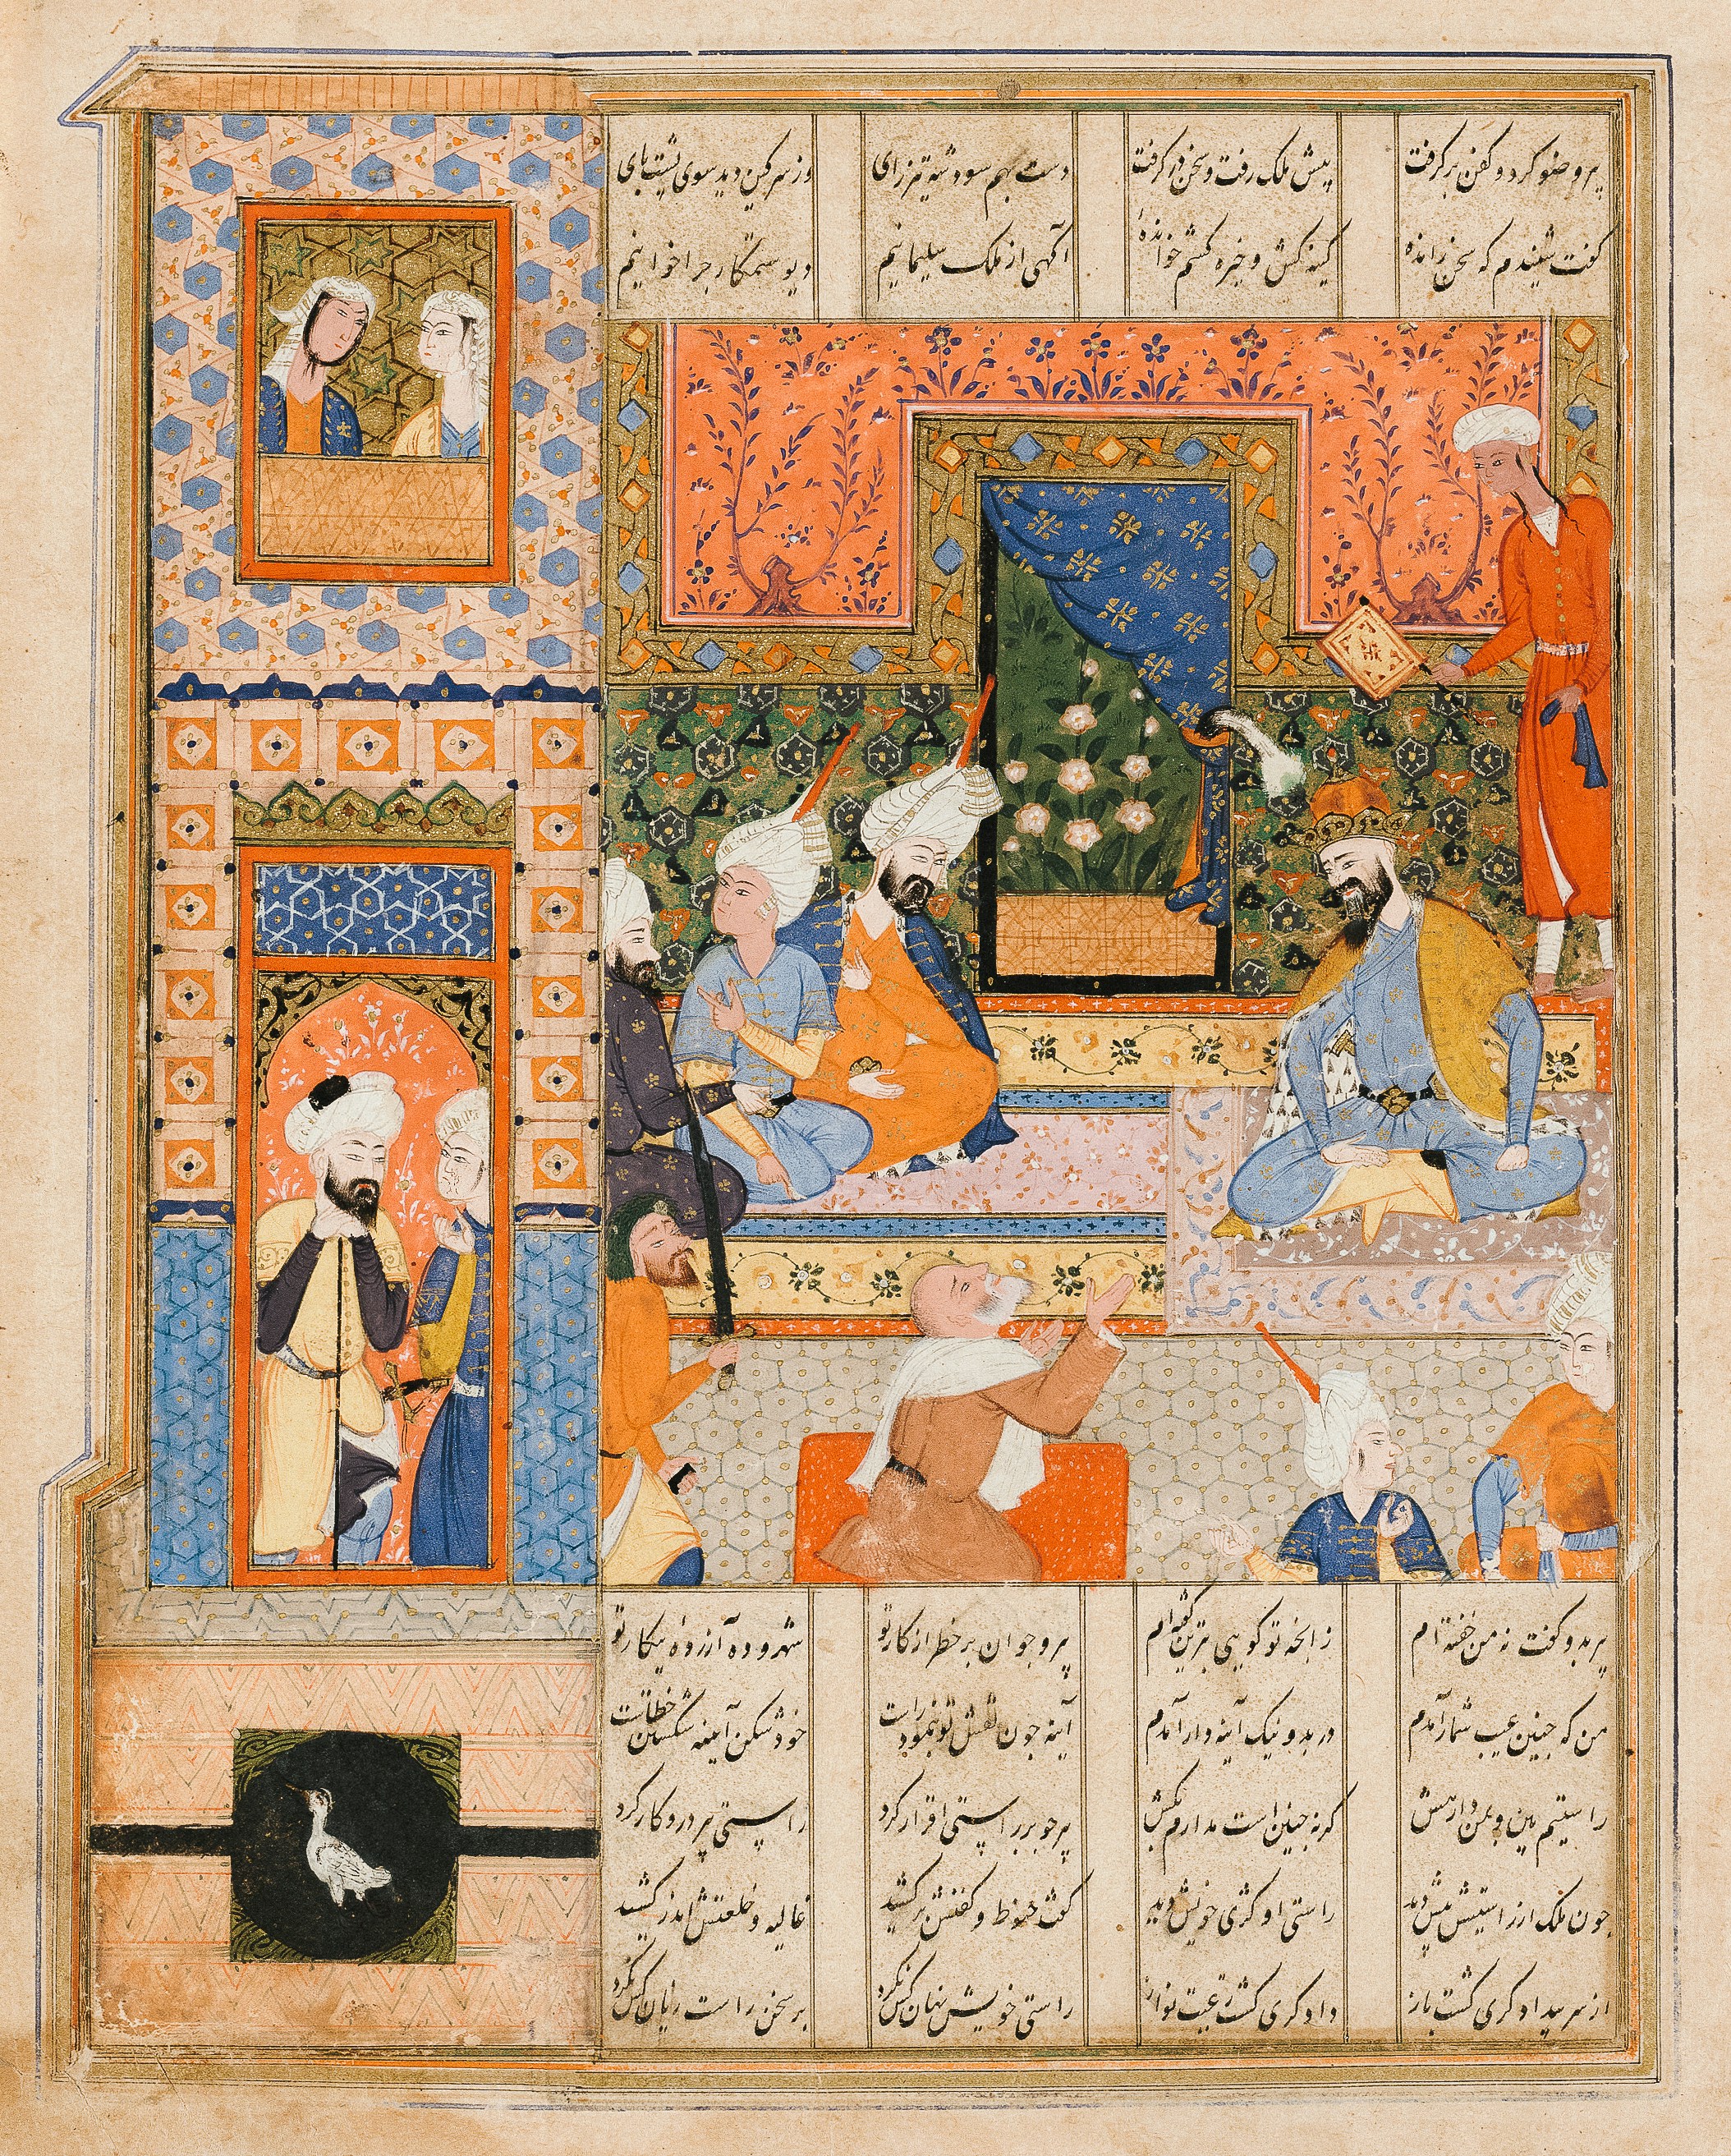 پیر وضو کرد و کفن برگرفت پیش ملک رفت و سخن در گرفت دست بهم سود شه تیز رای وز سر کین دید سوی پشت پای
گفت شنیدم که سخن رانده کینه کش و خیره کشم خواندهٔ آگهی از ملک سلیمانیم دیو ستمکار چرا خوانیم
پیر بدو گفت نه من خفته‌ام زانچه تو گویی بترین گفته‌ام پیر و جوان بر خطر از کار تو شهر و ده آزرده ز پیکار تو
من که چنین عیب شمار آمدم در بد و نیک آینه دار آمدم آینه چون نقش تو بنمود راست خود شکن آینه شکستن خطاست
راستیم بین و بمن دار هش گر نه چنین است بدارم بکش پیر چو بر راستی اقرار کرد راستی پیر درو کار کرد
چون ملک از راستیش پیش دید راستی او کژی خویش دید گفت حنوط و کفنش برکشید غالیه و خلعتش اندر کشید
از سر بیدادگری گشت باز دادگری گشت رعیت نواز راستی خویش نهان کس نکرد بر سخن راست زیان کس نکرد